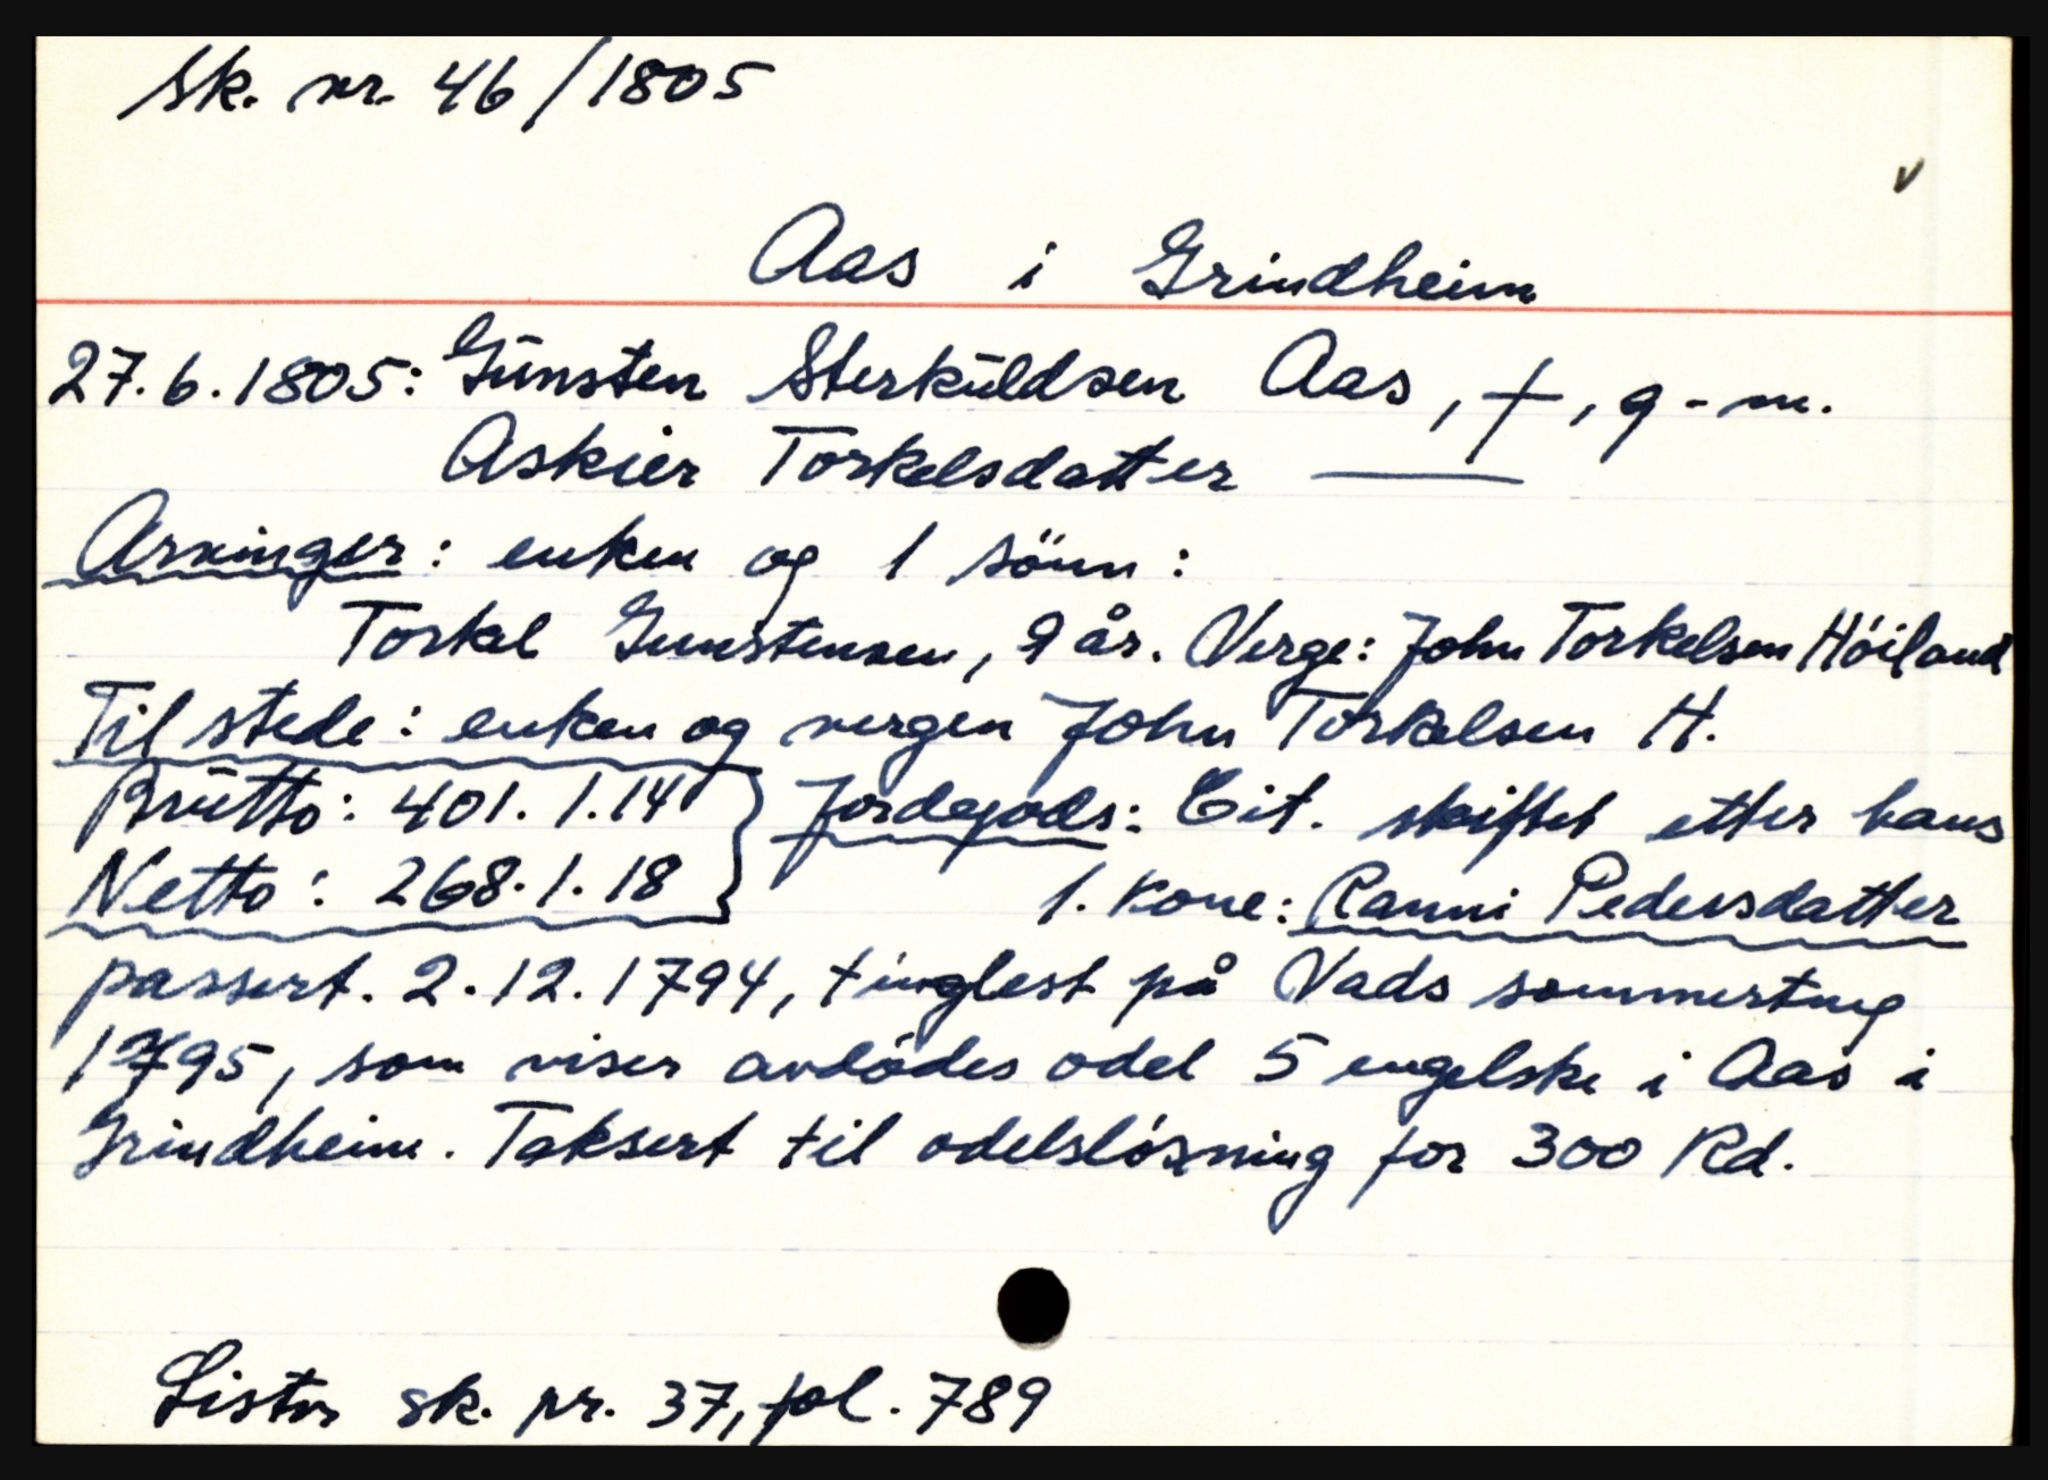 Sk. nr. 46/1805
v
Aas i Grindheim
27.6.1805: Gūnsten Sterkūldsen Aas, †, g-m.
Askier Torkelsdatter —
Arvinger: enken og 1 sönn:
Torkel Gunstensen, 9 år. Verge: John Torkelsen Höiland
Til stede: enken og vergen John Torkelsen H.
Brūtto: 401.1.14 } Jordegods: Cit. skiftet etter hans
Netto: 268.1.18 1. kone: Ranni Pedersdatter
passert. 2.12.1794, tinglest på Vads sommerting
1795, som viser avdödes odel 5 engelske i Aas i
Grindheim. Taksert til odelslösning for 300 Rd.
Lister sk. pr. 37, fol. 789